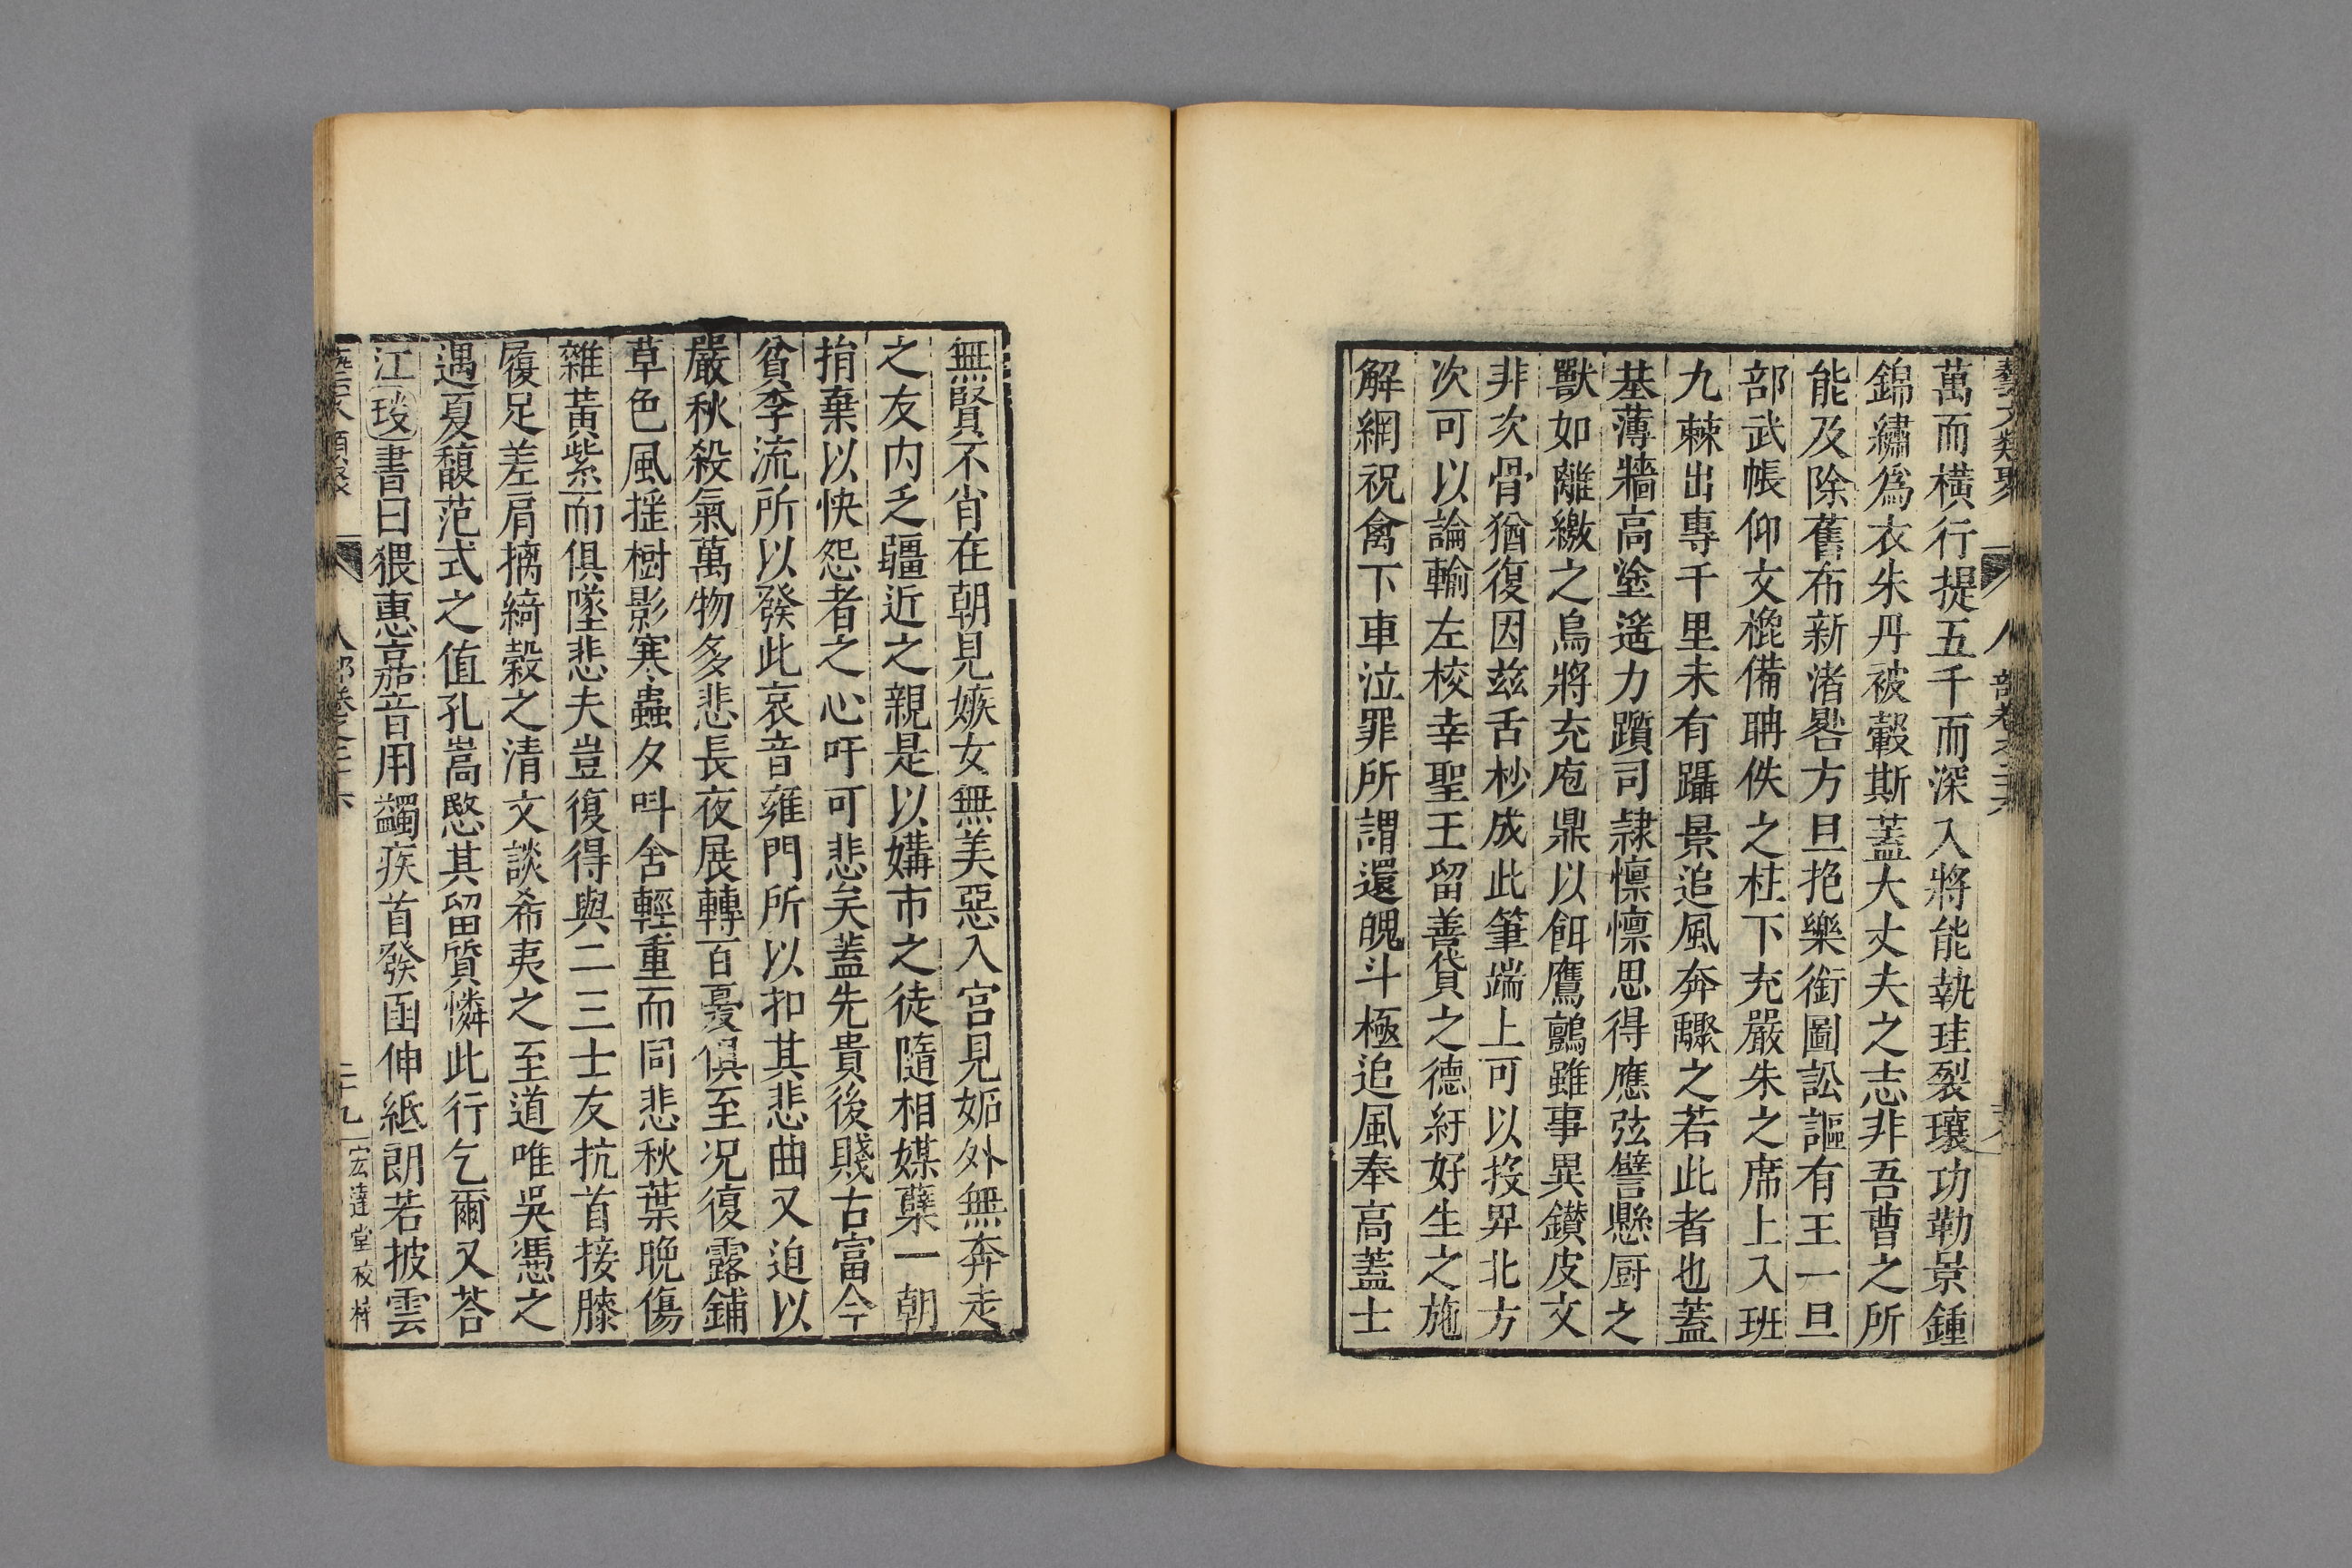 藝文類聚 人部卷之二十六 二十八
萬而橫行提五千而深入將能執珪裂壤功勒景鍾
錦繡爲衣朱丹被轂斯蓋大丈夫之志非吾曹之所
能及除舊布新渚晷方旦抱樂銜圖訟謳有王一旦
部武帳仰文櫈備聃佚之柱下充嚴朱之席上入班
九棘出專千里未有躡景追風奔驟之若此者也蓋
基薄牆高塗遙力躓司隷懍懍思得應弦譬懸厨之
獸如離繳之鳥將充庖鼎以餌鷹鸇雖事異鑚皮文
非次骨猶復因兹舌杪成此筆端上可以投畀北方
次可以論輸左校幸聖王留善貸之德紆好生之施
解網祝禽下車泣罪所謂還魄斗極追風奉高蓋士
無賢不肖在朝見嫉女無美惡入宮見妬外無奔走
之友內乏疆近之親是以媾市之徒隨相媒蘖一朝
捐棄以快怨者之心吁可悲矣蓋先貴後賤古富今
貧季流所以發此哀音雍門所以扣其悲曲又迫以
嚴秋殺氣萬物多悲長夜展轉百憂俱至况復露鋪
草色風搖樹影寒蟲夕叫舍輕重而同悲秋葉晚傷
雜黃紫而俱墜悲夫豈復得與二三士友抗首接膝
履足差肩摛綺縠之清文談希夷之至道唯吳馮之
遇夏馥范式之值孔嵩愍其留質憐此行乞爾又荅
江琰書曰猥惠嘉音用蠲疾首發函伸紙朗若披雲
人部卷之二十六 二十九 宏達堂校梓